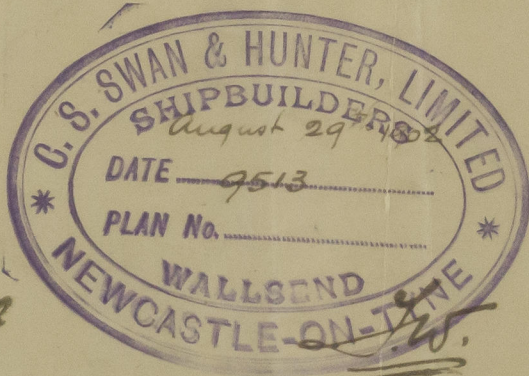 C. S. SWAN & HUNTER, LIMITED
SHIPBUILDERS
August 29th 1902
DATE
9513
PLAN No.
WALLSEND
NEWCASTLE-ON-TYNE